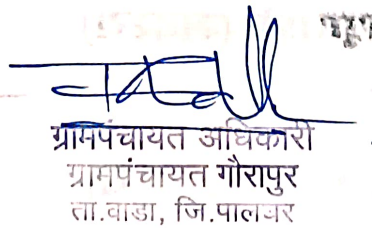 ग्रामपंचायत अधिकारी
ग्रामपंचायत गौरापुर
ता.वाडा, जि.पालघर